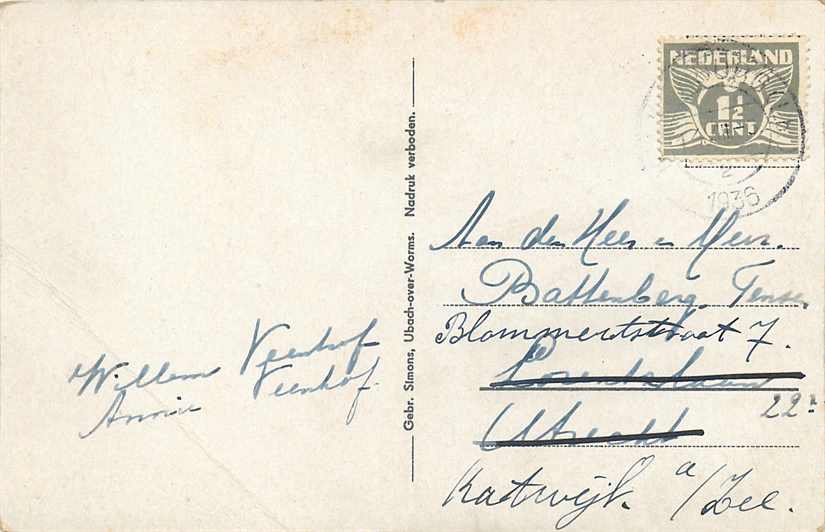 NEDERLAND
1½
CENT
1936
Gebr. Simons, Ubach-over-Worms. Nadruk verboden.
Aan den Heer en Mevr.
Battenberg
Blommertstraat 7.
22
Utrecht
Katwijk a/Zee.
Willem Veenhof
Annie Veenhof